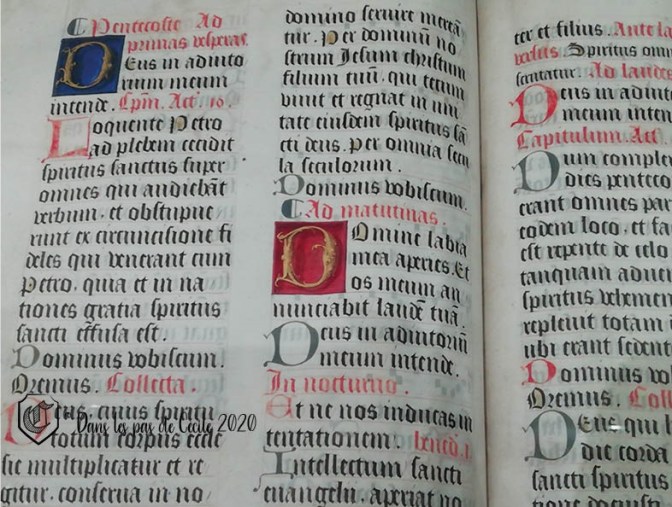 Pentecoste Ad
primas vesperas.
Deus in adiuto
rium meum
intende. Cpm. Act. 10.
Loquente Petro
ad plebem cecidit
spiritus sanctus super
omnes qui audiebāt
verbum. et obstupue
runt ex circuncisione fi
deles qui venerant cum
Petro. quia et in na
tiones gratia spiritus
sancti effusa est.
Dominus vobiscum.
Oremus. Collecta.
Deus, cuius spiritu
totum corpus eccle
sie multiplicatur et re
gitur. conserva in no
domino servire mereā
tur. Per dominū no
strum Jesum christum
filium tuū. qui tecum
vivit et regnat in uni
tate eiusdem spiritus sā
cti deus. per omnia secu
la seculorum.
Dominus vobiscum.
Ad matutinas.
Domine labia
mea aperies. Et
os meum an
nunciabit laudē tuā.
Deus in adiutoriū
meum intende.
In nocturno.
Et ne nos inducas in
tentationem. bened. 1.
Intellectum sancti
euangelii. aperiat no
ter et filius. Ante la
versus Spiritus omn
scrutatur. Ad laudes
Deus in adiuto
meum inten
Capitulum. Act.
Dum comple
dies penteco
erant omnes par
eodem loco. et fa
est repente de celo
tanquam adveni
spiritus vehemen
replevit totam
ubi erant sedent
Dominus vo
Oremus. Coll
Deus qui h
die corda
sancti spiritus
Dans les pas de Cécile 2020